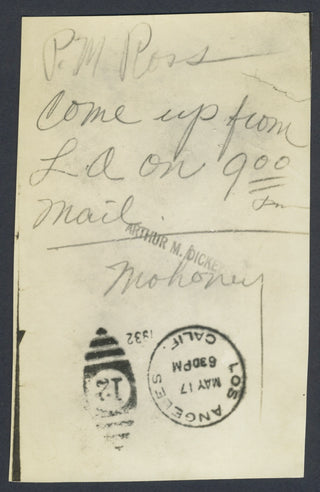 P. M Ross
Come up from
L A on 9 00
Pm
mail.
ARTHUR M. DICKE
Mohoney
1932
12
LOS ANGELES
CALIF.
MAY 17
630PM